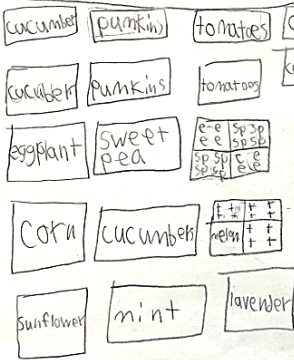 cucumber punkins tomatoes
cucuber punkins tomatoes
eggplant sweet pea
e-e sp sp
e e sp sp
sp sp e e
sp sp e e
corn cucumbers
t t t t
t t t t
melon t t
t t
sunflower mint lavender